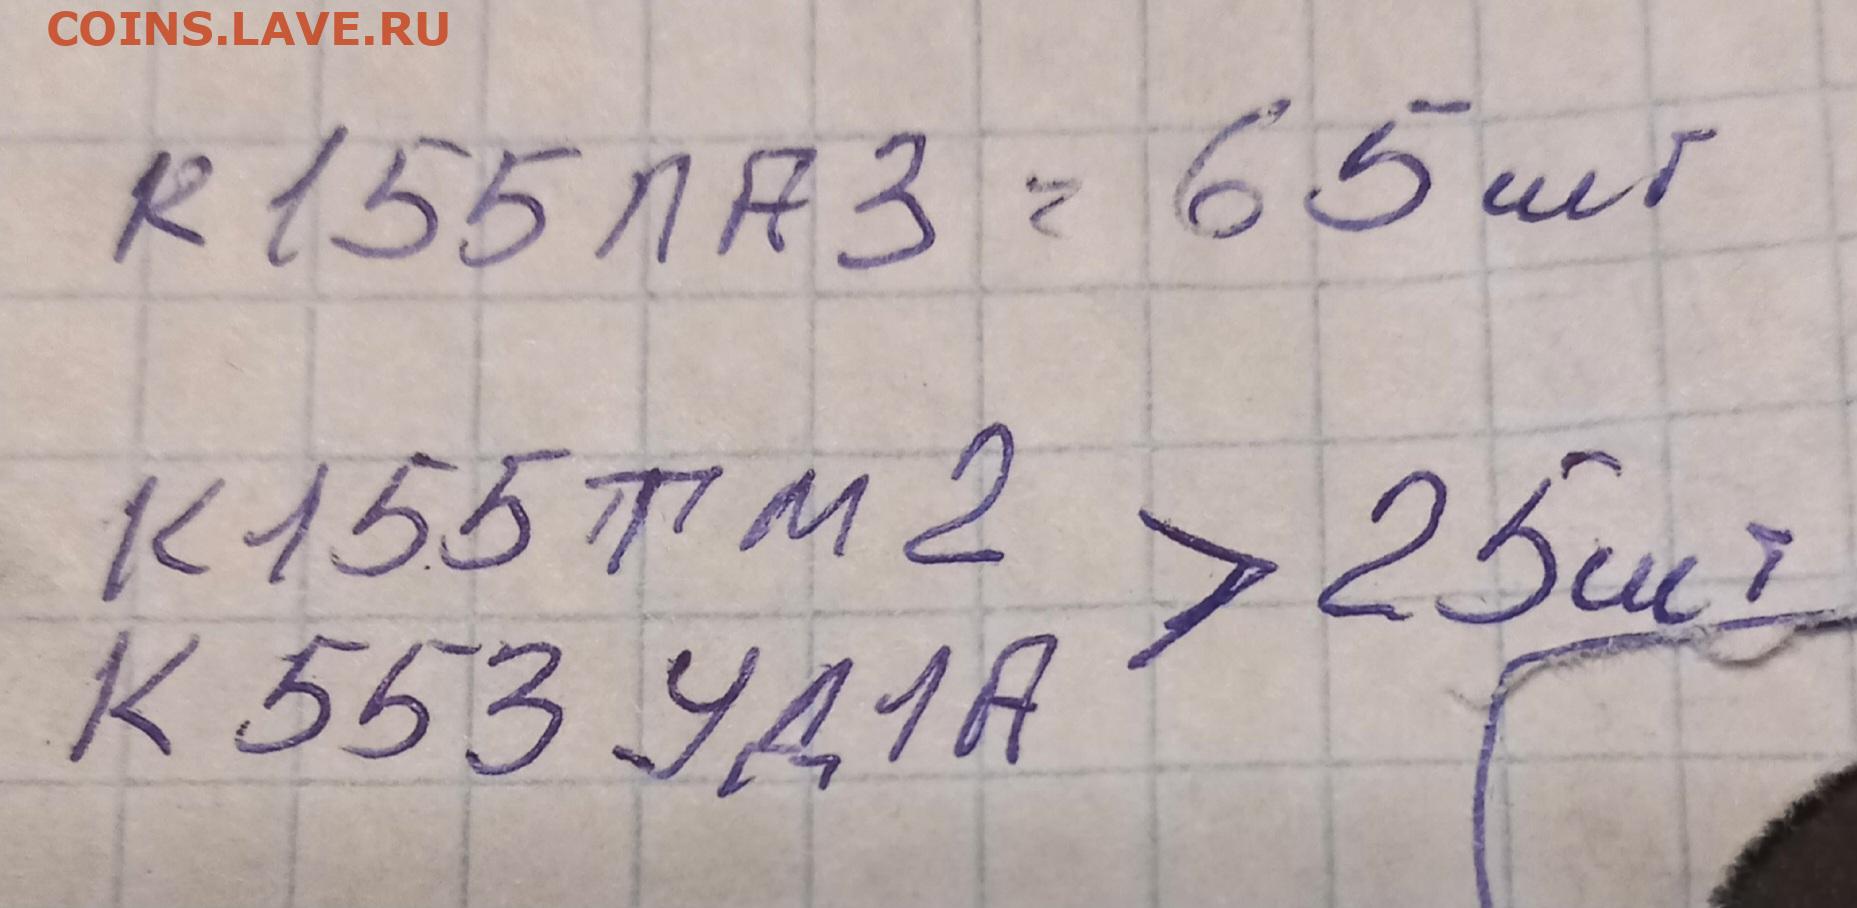 COINS.LAVE.RU
К155ЛА3 = 65шт
К155ТМ2
> 25шт
К553УД1А